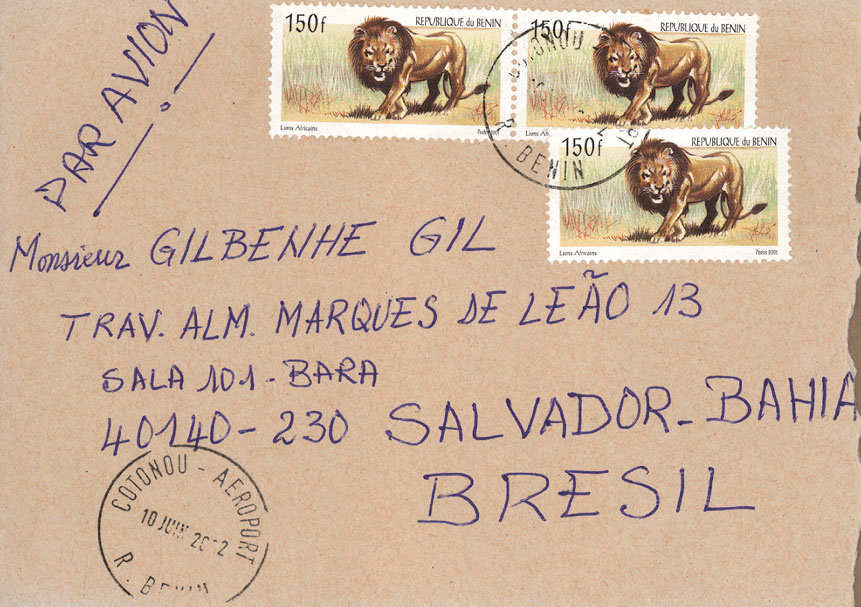 PAR AVION
150f REPUBLIQUE du BENIN
Lions Africains Postes 2001
150f REPUBLIQUE du BENIN
Lions Africains
150f REPUBLIQUE du BENIN
Lions Africains Postes 2001
COTONOU
R. BENIN
Monsieur GILBENHE GIL
TRAV. ALM. MARQUES DE LEÃO 13
SALA 101 - BARA
40140 - 230 SALVADOR - BAHIA
BRESIL
COTONOU - AEROPORT
10 JUIN
R. BENIN